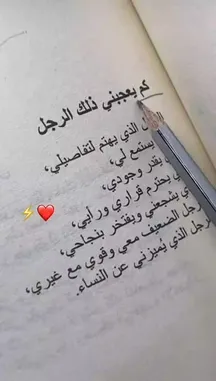 كم يعجبني ذلك الرجل
الذي يهتم لتفاصيلي،
يستمع لي،
يقدر وجودي،
يحترم قراري ورأيي،
يشجعني ويفتخر بنجاحي،
رجل الضعيف معي وقوي مع غيري،
الرجل الذي يُميزني عن النساء.